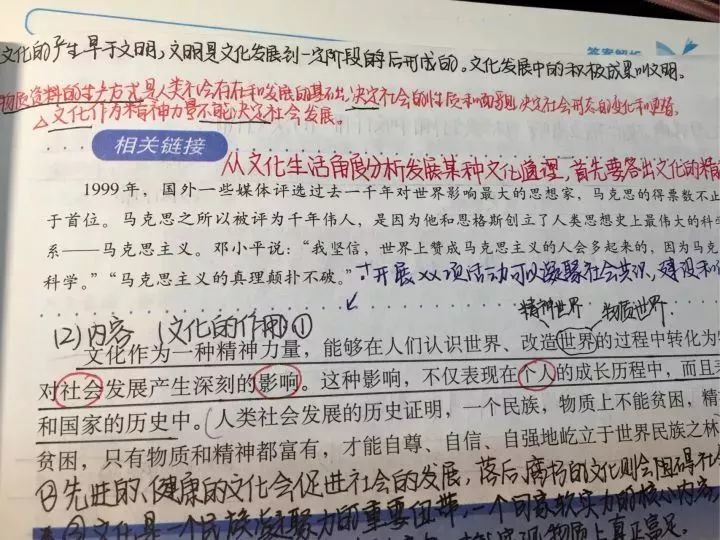 答案解析
文化的产生早于文明，文明是文化发展到一定阶段的时后形成的。文化发展中的积极成果叫文明。
物质资料的生产方式是人类社会存在和发展的基础，决定社会的性质和面貌，决定社会形态的变化和更替，
△文化作为精神力量不能决定社会发展。
相关链接
从文化生活角度分析发展某种文化道理，首先要答出文化的精
1999年，国外一些媒体评选过去一千年对世界影响最大的思想家，马克思的得票数不止
于首位。马克思之所以被评为千年伟人，是因为他和恩格斯创立了人类思想史上最伟大的科学
系——马克思主义。邓小平说：“我坚信，世界上赞成马克思主义的人会多起来的，因为马克
科学。”“马克思主义的真理颠扑不破。”
开展xx项活动可以凝聚社会共识，建设和
精神世界 物质世界
(2)内容 (文化的作用)①
文化作为一种精神力量，能够在人们认识世界、改造世界的过程中转化为物
对社会发展产生深刻的影响。这种影响，不仅表现在个人的成长历程中，而且表
和国家的历史中。(人类社会发展的历史证明，一个民族，物质上不能贫困，精
贫困，只有物质和精神都富有，才能自尊、自信、自强地屹立于世界民族之林
②先进的、健康的文化会促进社会的发展，落后、腐朽的文化则会阻碍社
③文化是一个民族凝聚力的重要纽带，一个国家软实力的核心内容，
物质上真正富足。